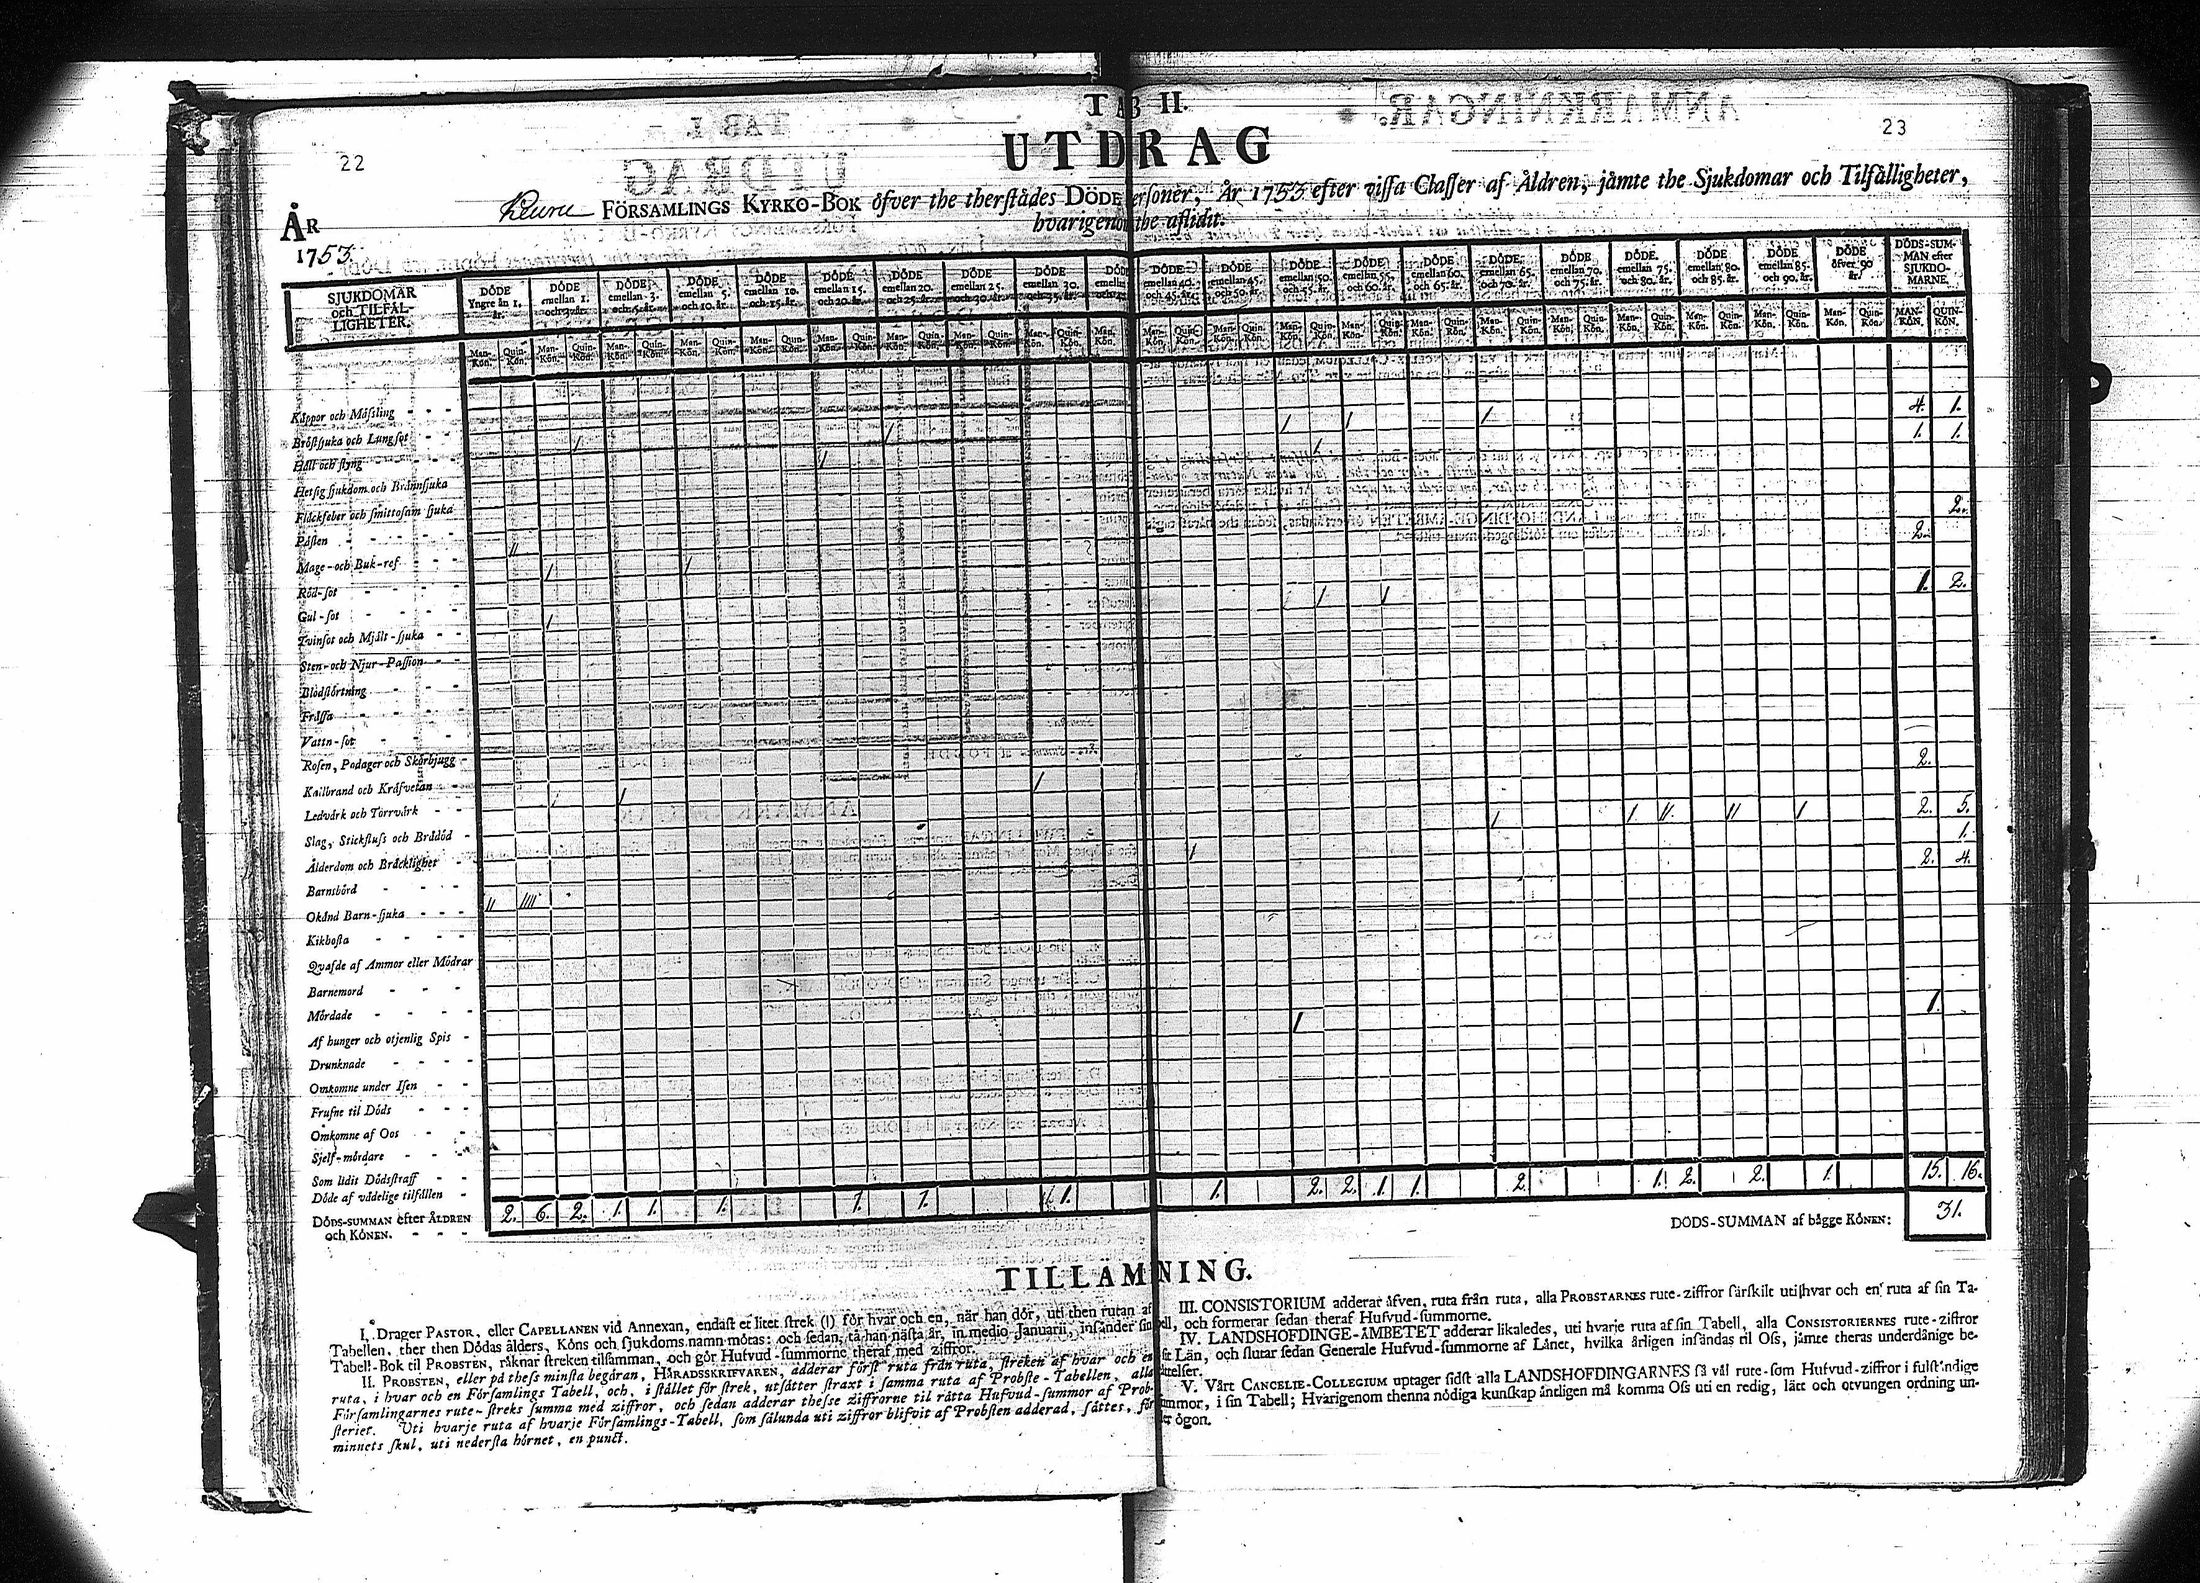 TAB II.
22
23
UTDRAG
ÅR
1753.
Keuru FÖRSAMLINGS KYRKO-BOK öfver the therstådes DÖDE Personer, År 1753 efter vissa Classer af Åldren, jämte the Sjukdomar och Tilfälligheter,
hvarigenom the aflidit.
SJUKDOMAR och TILFÄLLIGHETER.
DÖDE Yngre än 1. år.
DÖDE emellan 1. och 3. år.
DÖDE emellan 3. och 5. år.
DÖDE emellan 5. och 10. år.
DÖDE emellan 10. och 15. år.
DÖDE emellan 15. och 20. år.
DÖDE emellan 20. och 25. år.
DÖDE emellan 25. och 30. år.
DÖDE emellan 30. och 35. år.
DÖDE emellan 40. och 45. år.
DÖDE emellan 45. och 50. år.
DÖDE emellan 50. och 55. år.
DÖDE emellan 55. och 60. år.
DÖDE emellan 60. och 65. år.
DÖDE emellan 65. och 70. år.
DÖDE emellan 70. och 75. år.
DÖDE emellan 75. och 80. år.
DÖDE emellan 80. och 85. år.
DÖDE emellan 85. och 90. år.
DÖDE öfver 90 år.
DÖDS-SUMMAN efter SJUKDOMARNE.
Man-Kön. Quin-Kön. Man-Kön. Quin-Kön. Man-Kön. Quin-Kön. Man-Kön. Quin-Kön. Man-Kön. Quin-Kön. Man-Kön. Quin-Kön. Man-Kön. Quin-Kön. Man-Kön. Quin-Kön. Man-Kön. Quin-Kön. Man-Kön. Man-Kön. Quin-Kön. Man-Kön. Quin-Kön. Man-Kön. Quin-Kön. Man-Kön. Quin-Kön. Man-Kön. Quin-Kön. Man-Kön. Quin-Kön. Man-Kön. Quin-Kön. Man-Kön. Quin-Kön. Man-Kön. Quin-Kön. Man-Kön. Quin-Kön. Man-Kön. Quin-Kön. MAN-KÖN. QUIN-KÖN.
Koppor och Mässling - - -
Bröstsjuka och Lungsot - - / / / / / 4. 1.
Håll och styng - - - / / 1. 1.
Hetsig sjukdom och Brännsjuka
Fläckfeber och smittosam sjuka
Påsten - - - - // 2.
Mage-och Buk-ref - - / / 2.
Röd-sot - - - -
Gul-sot - - - - / / / 1. 2.
Tvinsot och Mjält-sjuka - -
Sten-och Njur-Passion - -
Blodstörtning - - -
Frässa - - - -
Vattn-sot - - - -
Rosen, Podager och Skörbjugg -
Kallbrand och Kräfvetan - - / / 2.
Ledvärk och Torrvärk - -
Slag, Stickfluss och Brådöd - / / // // / 2. 5.
Ålderdom och Bräcklighet - / 1.
Barnsbörd - - - 2. 4.
Okänd Barn-sjuka - - - // ////
Kikhosta - - - -
Qvafde af Ammor eller Mödrar
Barnemord - - -
Mördade - - - - 1.
Af hunger och otjenlig Spis - /
Drunknade - - - -
Omkomne under Isen - -
Frusne til Döds - - -
Omkomne af Oos - -
Sjelf-mördare - - -
Som lidit Dödsstraff - -
Döde af vådelige tilfällen -
DÖDS-SUMMAN efter ÅLDREN och KÖNEN. - - - 2. 6. 2. 1. 1. 1. 1. 1. 1. 1. 2. 2. 1. 1. 2. 1. 2. 2. 1. 15. 16.
DÖDS-SUMMAN af bägge KÖNEN: 31.
TILLÄMNING.
I. Drager PASTOR, eller CAPELLANEN vid Annexan, endast et litet strek (|) för hvar och en, när han dör, uti then rutan af
Tabellen, ther then Dödas ålders, Köns och sjukdoms namn mötas: och sedan, tå han nästa år, in medio Januarii, insänder sin
Tabell-Bok til PROBSTEN, räknar streken tilsamman, och gör Hufvud-summorne theraf med ziffror.
II. PROBSTEN, eller på thess minsta begäran, HÄRADSSKRIFVAREN, adderar först ruta från ruta, streken af hvar och en
ruta, i hvar och en Församlings Tabell, och, i stället för strek, utsätter straxt i samma ruta af Probste-Tabellen, alla
Församlingarnes rute-streks summa med ziffror, och sedan adderar thesse ziffrorne til rätta Hufvud-summor af Prob-
steriet. Uti hvarje ruta af hvarje Församlings-Tabell, som sålunda uti ziffror blifvit af Probsten adderad, sättes, för
minnets skul, uti nedersta hörnet, en punct.
III. CONSISTORIUM adderar äfven, ruta från ruta, alla PROBSTARNES rute-ziffror särskilt uti hvar och en ruta af sin Ta-
bell, och formerar sedan theraf Hufvud-summorne.
IV. LANDSHÖFDINGE-ÄMBETET adderar likaledes, uti hvarje ruta af sin Tabell, alla CONSISTORIERNES rute-ziffror
Län, och slutar sedan Generale Hufvud-summorne af Länet, hvilka årligen insändas til Oss, jämte theras underdånige be-
rättelser.
V. Vårt CANCELIE-COLLEGIUM uptager sidst alla LANDSHÖFDINGARNES så väl rute-som Hufvud-ziffror i fulständige
summor, i sin Tabell; Hvarigenom thenna nödiga kunskap äntligen må komma Oss uti en redig, lätt och otvungen ordning un-
der ögon.